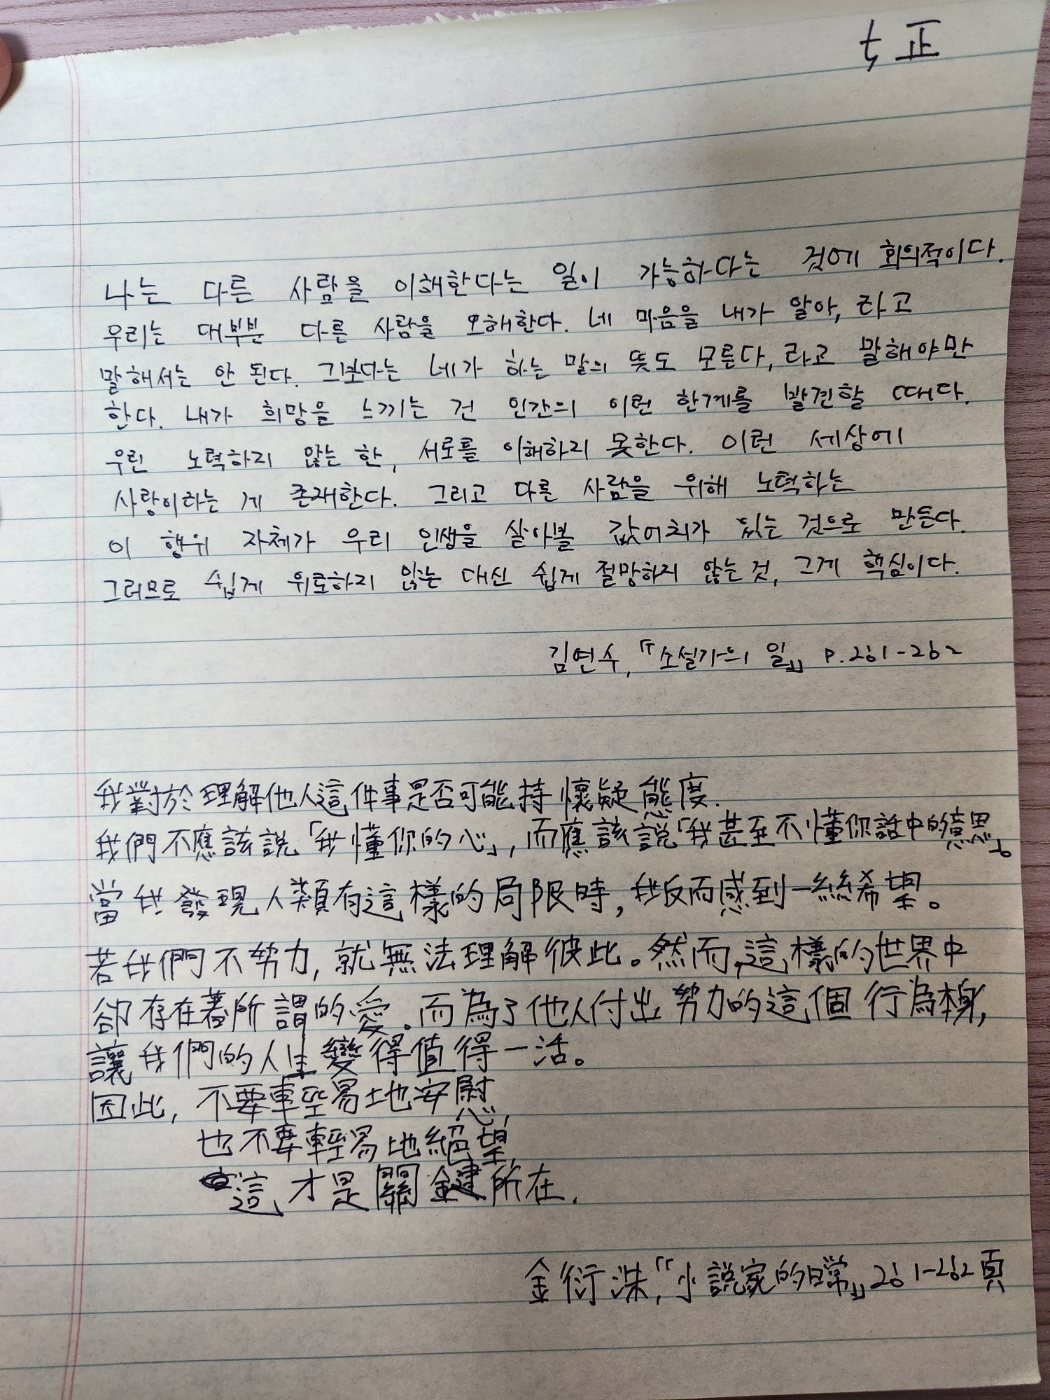 正
나는 다른 사람을 이해한다는 일이 가능하다는 것에 회의적이다.
우리는 대부분 다른 사람을 오해한다. 네 마음을 내가 알아, 라고
말해서는 안 된다. 그보다는 네가 하는 말의 뜻도 모른다, 라고 말해야만
한다. 내가 희망을 느끼는 건 인간의 이런 한계를 발견할 때다.
우린 노력하지 않는 한, 서로를 이해하지 못한다. 이런 세상에
사랑이라는 게 존재한다. 그리고 다른 사람을 위해 노력하는
이 행위 자체가 우리 인생을 살아볼 값어치가 있는 것으로 만든다.
그러므로 쉽게 위로하지 않는 대신 쉽게 절망하지 않는 것, 그게 핵심이다.
김연수, 『소설가의 일』 p.261-262
我對於理解他人這件事是否可能持懷疑態度.
我們不應該說「我懂你的心」, 而應該說「我甚至不懂你話中的意思」。
當我發現人類有這樣的局限時, 我反而感到一絲希望。
若我們不努力, 就無法理解彼此。然而,這樣的世界中
卻存在著所謂的愛。而為了他人付出努力的這個行為本身,
讓我們的人生變得值得一活。
因此, 不要輕易地安慰,
也不要輕易地絕望,
這才是關鍵所在.
金衍洙,『小說家的日常』261-262頁